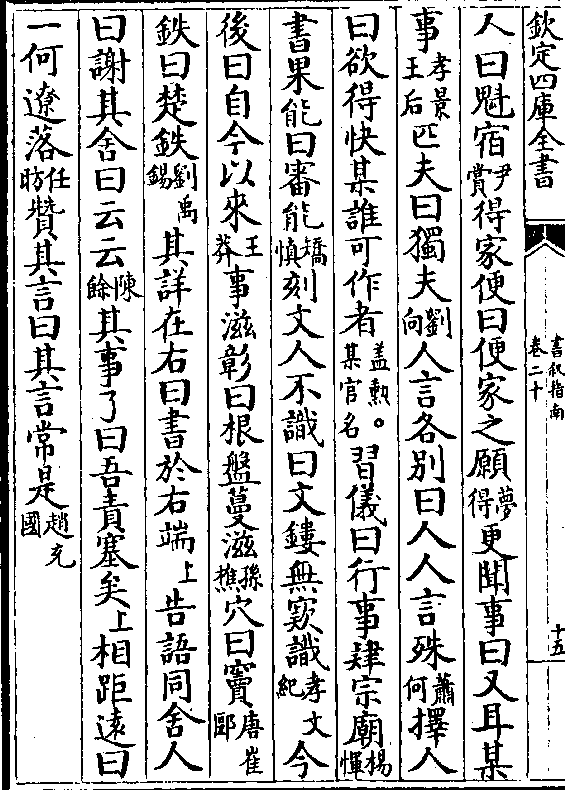 欽定四庫全書
書叙指南
卷二十
十五
人曰魁宿尹賞得家便曰便家之願夢得更聞事曰又耳某
事孝景王后匹夫曰獨夫劉向人言各別曰人人言殊蕭何擇人
曰欲得快某誰可作者盖勲。某官名習儀曰行事肄宗廟楊惲
書果能曰審能矯慎刻文人不識曰文鏤無窾識孝文紀今
後曰自今以來王莽事滋彰曰根盤蔓滋孫樵穴曰竇唐崔郾
鈇曰楚鈇劉禹錫其詳在右曰書於右端上告語同舍人
曰謝其舍曰云云陳餘其事了曰吾責塞矣上相距遠曰
一何遼落任昉贊其言曰其言常是趙充國